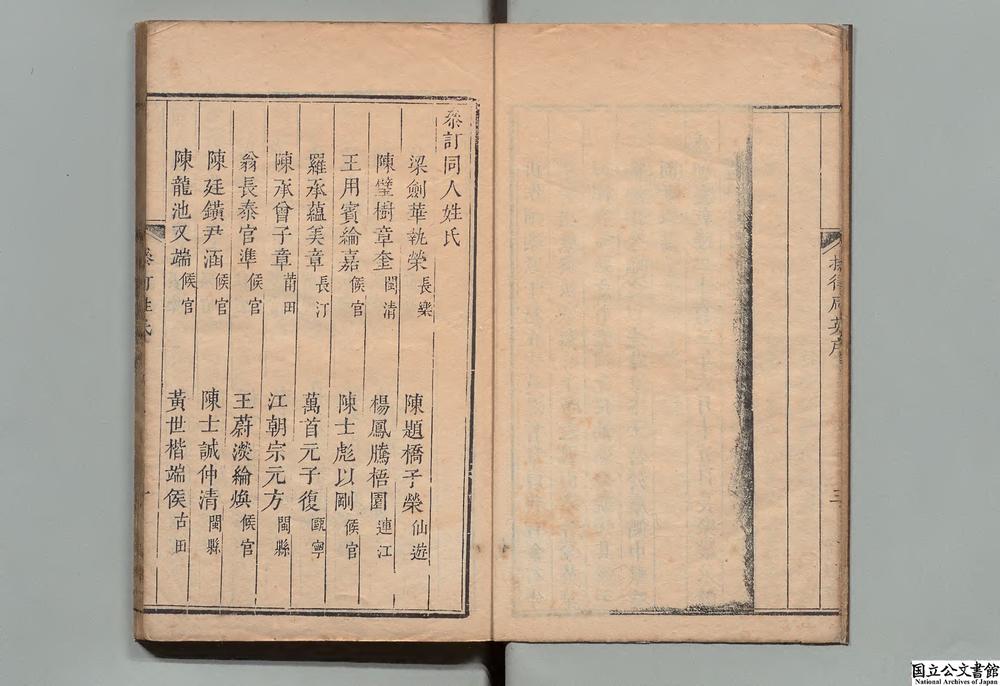 叅訂同人姓氏
梁劍華執榮 長樂 陳題橋子榮 仙遊
陳瑩樹章奎 閩清 楊鳳騰梧園 連江
王用賓綸嘉 候官 陳士彪以剛 候官
羅承蘊美章 長汀 萬首元子復 甌寧
陳承曾子章 莆田 江朝宗元方 閩縣
翁長泰官準 候官 王蔚淡綸煥 候官
陳廷鐄尹涵 候官 陳士誠仲清 閩縣
陳龍池又端 候官 黃世楷端侯 古田
叅訂姓氏
三
国立公文書館
National Archives of Japan